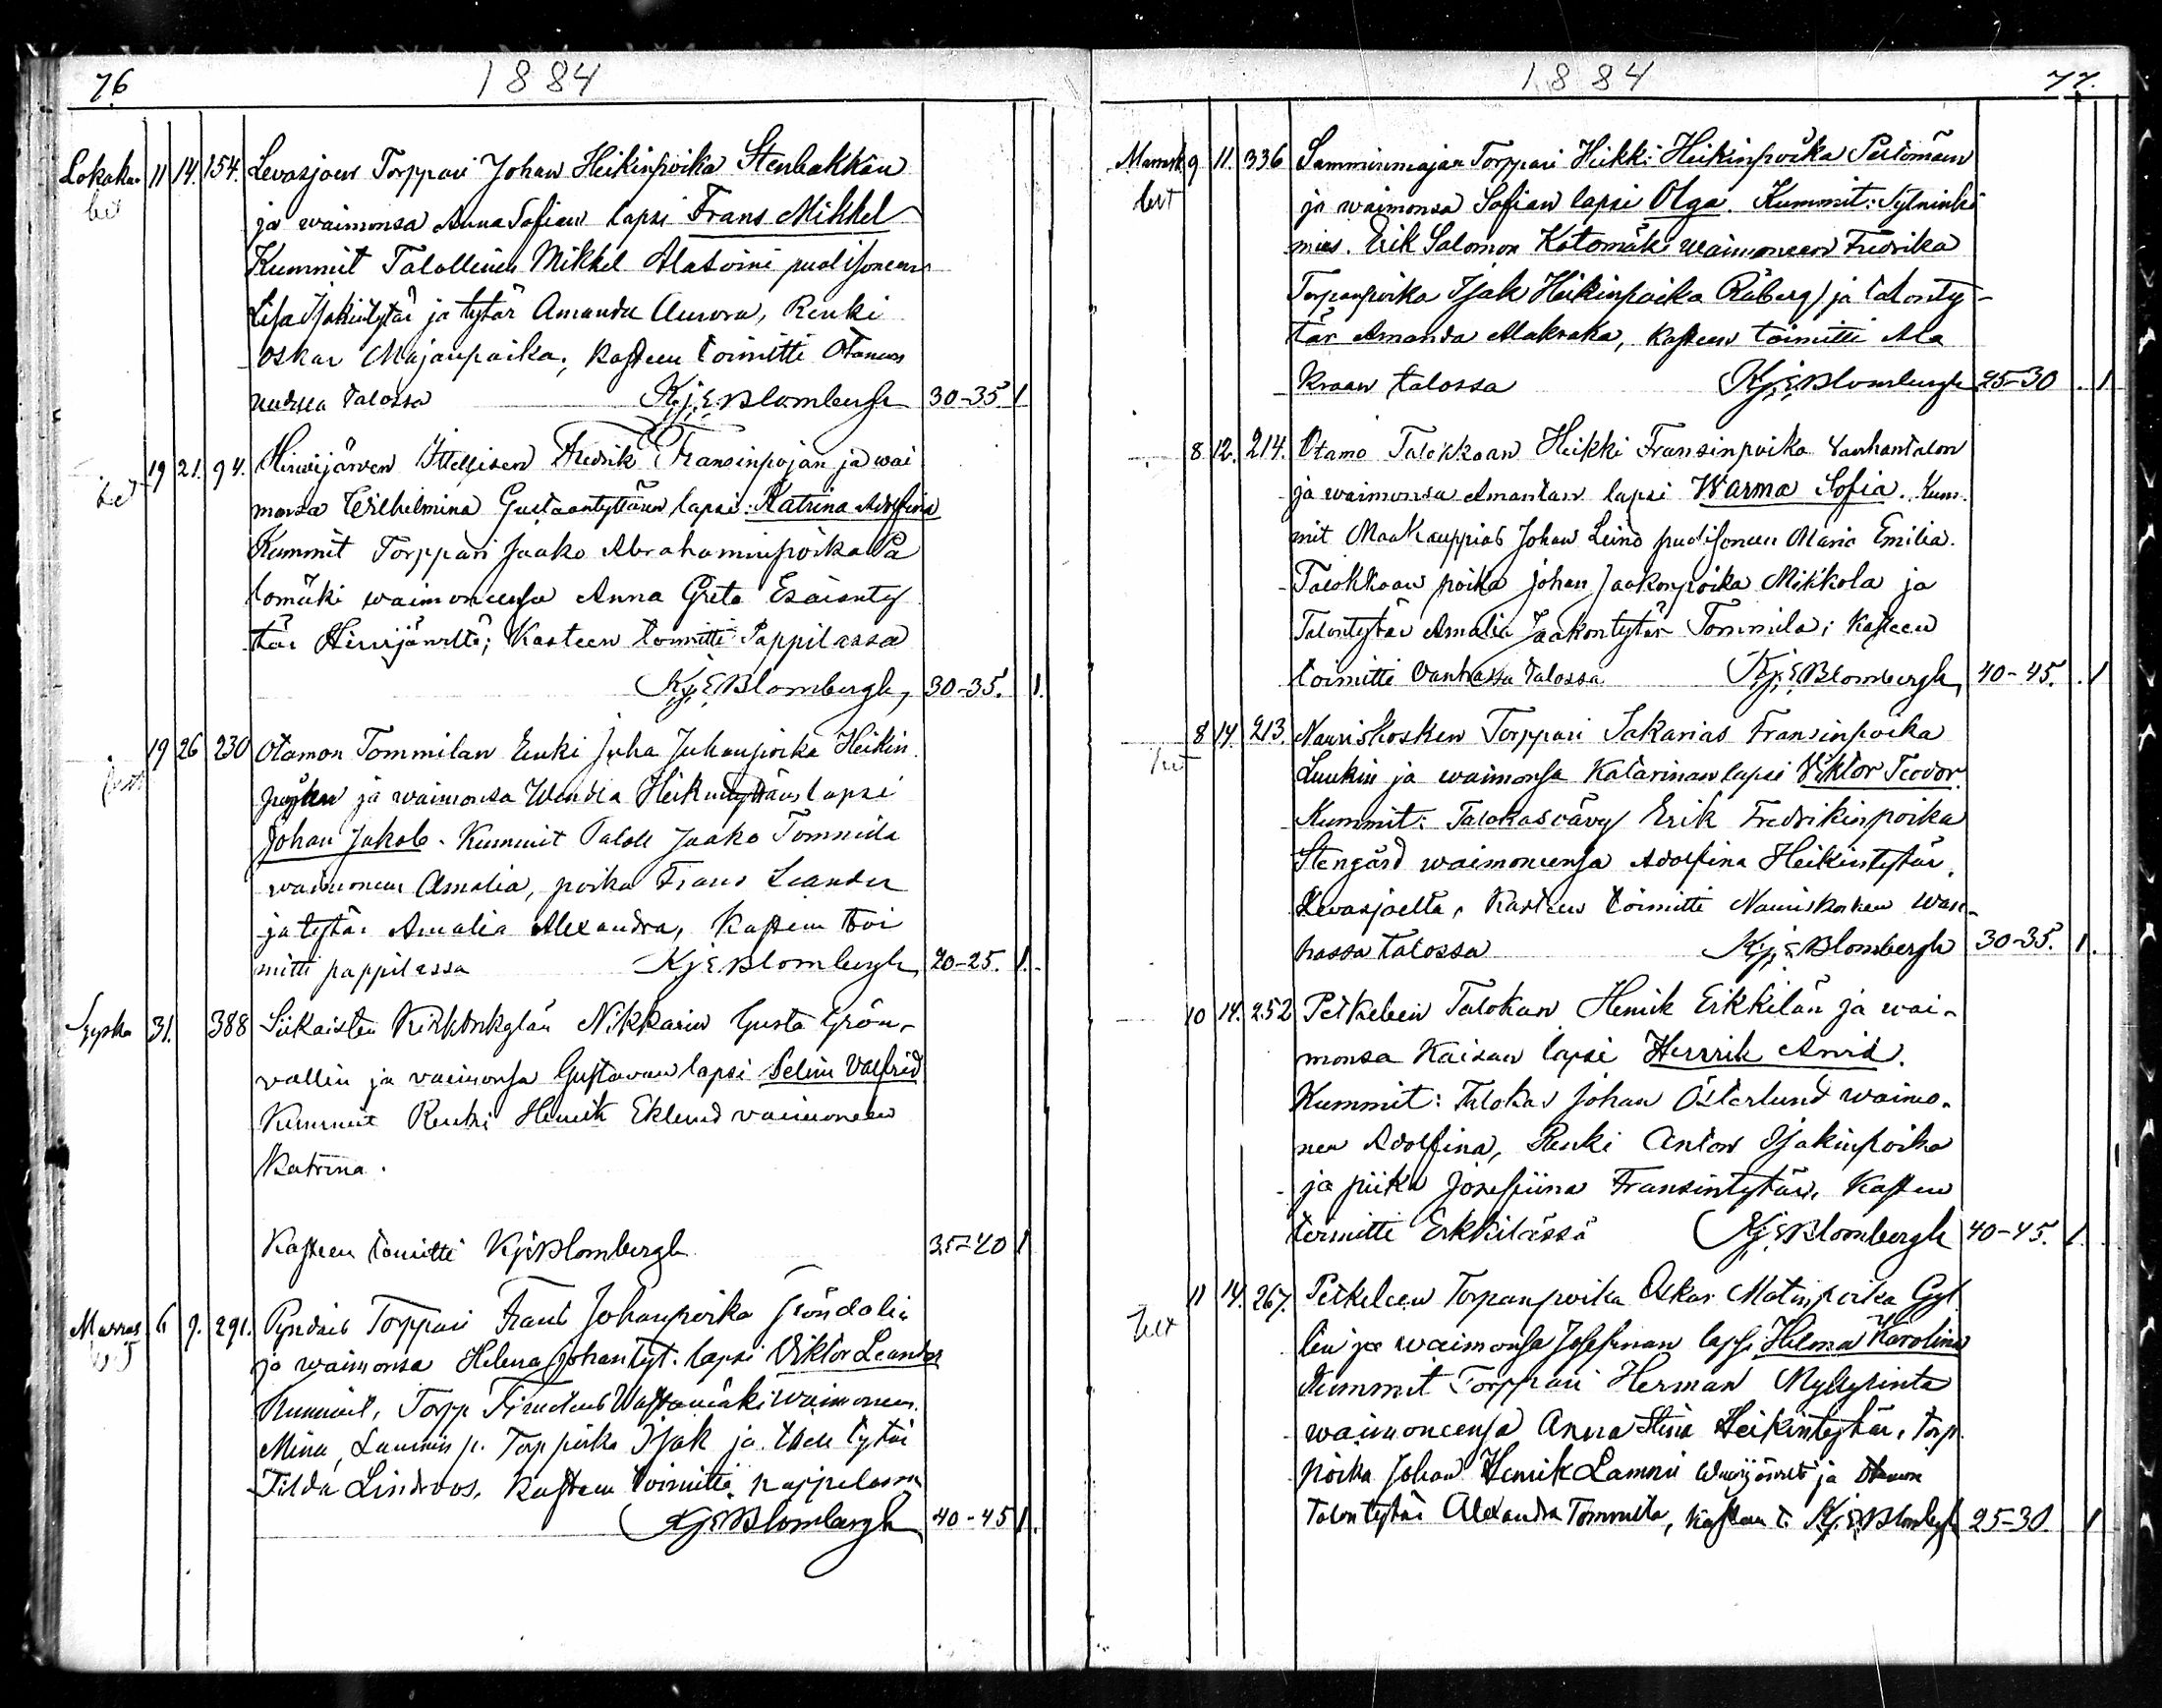 76
1884
Lokakuu 11 14. 154. Levasjoen Torppari Johan Heikinpoika Stenbakkan
ja waimonsa Anna Sofian lapsi Frans Mikkel
Kummit Talollinen Mikkel Alatoini puolisoneen
Lisa Isakintytär ja tytär Amanda Aurora, Renki
Oskar Majanpoika, Kasteen toimitti Otamon
talossa Kj. E. Blombergh 30-35 1
19 21. 94. Hirvijärven Ittellisen Fredrik Fransinpojan ja wai
monsa Wilhelmina Gustaantyttären lapsi Katrina Adolfina
Kummit Torppari Jaako Abrahaminpoika Pa
lomäki waimoneensa Anna Greta Esaianty
tär Hirvijärveltä; Kasteen toimitti Pappilassa
Kj. E. Blombergh, 30-35. 1.
19 26 230 Otamon Tommilan Renki Juha Juhanpoika Heikin
ja waimonsa Wendla Heikintyttären lapsi
Johan Jakob. Kummit Taloll Jaako Tommila
waimoneen Amalia, poika Frans Leander
ja tytär Amalia Alexandra, Kasteen toi
mitti pappilassa Kj E Blombergh 20-25. 1.
Syysku 31. 388 Siikaisten Kirkonkylän Nikkarin Gusta Grön-
vallin ja vaimonsa Gustavan lapsi Selim Valfrid
Kummit Renki Henrik Eklund vaimoneen
Katrina.
Kasteen toimitti Kj E Blombergh 35-40 1
Marras 6 9. 291. Torppari Frans Johanpoika Gröndalin
ja waimonsa Helena Johantyt. lapsi Viktor Leander
Kummit, Torpp waimoneen
Mina, p. Torp poika Isak ja tytär
Tilda Lindroos. Kasteen toimitti pappilassa
Kj E Blombergh 40-45 1.
1884
77.
Marrask 9 11. 336 Samminmajan Torppari Heikki Heikinpoika Peltomäen
ja waimonsa Sofian lapsi Olga. Kummit:
mies. Erik Salomon Katomäki waimoneen Fredrika
Torpanpoika Isak Heikinpoika Råberg ja talonty-
tär Amanda Alakraka, Kasteen toimitti Ala
kraan talossa Kj. E. Blombergh 25-30 1
8 12. 214. Otamo Talokkaan Heikki Fransinpoika Vanhantalon
ja waimonsa Amandan lapsi Warma Sofia. Kum-
mit Maakauppias Johan Leino puolisoneen Maria Emilia.
Talokkaan poika Johan Jaakonpoika Mikkola ja
Talontytär Amalia Jaakontytär Tommila; Kasteen
toimitti Vanhassa talossa Kj. E. Blombergh, 40-45. 1
8 14. 213. Nauriskosken Torppari Sakarias Fransinpoika
Luukin ja waimonsa Katarinan lapsi Viktor Teodor.
Kummit: Talokasvävy Erik Fredrikinpoika
Stengård waimoneensa Adolfina Heikintytär,
Levasjoelta, Kasteen toimitti Nauriskosken wan-
hassa talossa Kj. E. Blombergh 30-35. 1.
10 14. 252 Petkeleen Talokan Henrik Erikkilän ja wai-
monsa Kaisan lapsi Henrik Arvid.
Kummit: Talokas Johan Österlund waimo-
nen Adolfina, Renki Anton Isakinpoika
ja piika Josefiina Fransintytär, Kasteen
toimitti Erkkilässä Kj. E. Blombergh 40-45. 1.
11 14. 267. Petkeleen Torpanpoika Oskar Matinpoika Gyl
lin ja waimonsa Josefinan lapsi Helma Karolina
Kummit Torppari Herman Myllyrinta
waimoneensa Anna Stina Heikintytär, Torp.
poika Johan Henrik Lammi ja Otamon
Talontytär Alexandra Tommila, Kasteen t. Kj. E. Blombergh 25-30. 1